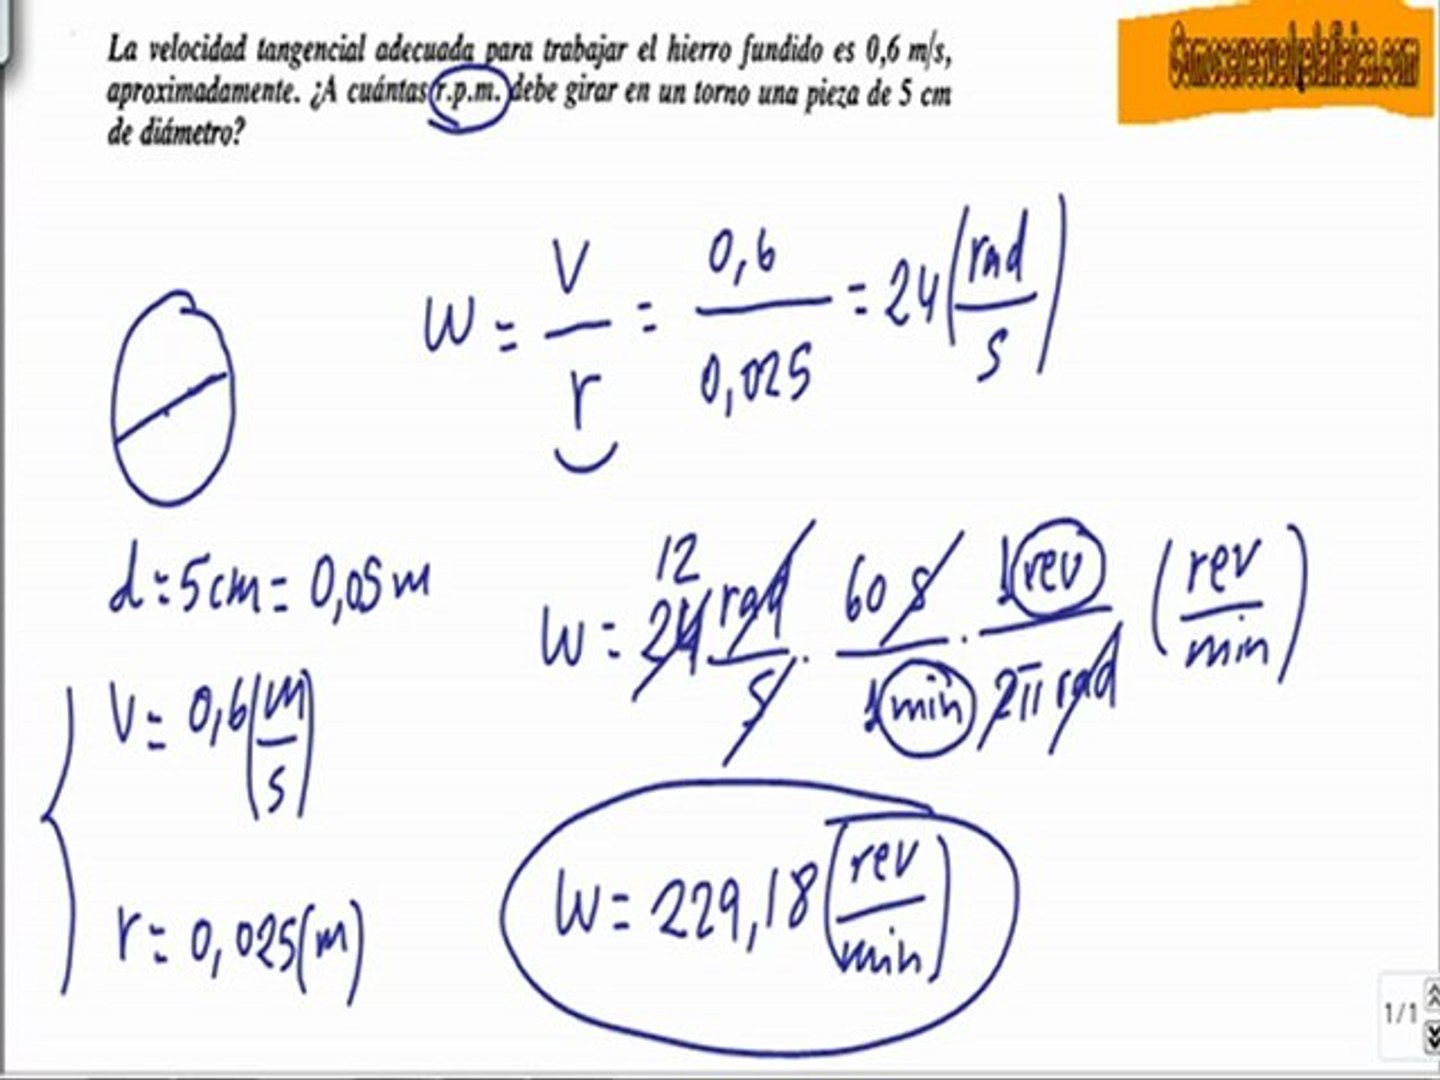 La velocidad tangencial adecuada para trabajar el hierro fundido es 0,6 m/s,
aproximadamente. ¿A cuántas r.p.m. debe girar en un torno una pieza de 5 cm
de diámetro?
w = v / r = 0,6 / 0,025 = 24 (rad / s)
d = 5 cm = 0,05 m
12
w = 24 rad / s · 60 s / 1 min · 1 rev / 2π rad (rev / min)
v = 0,6 (m / s)
w = 229,18 (rev / min)
r = 0,025 (m)
1/1